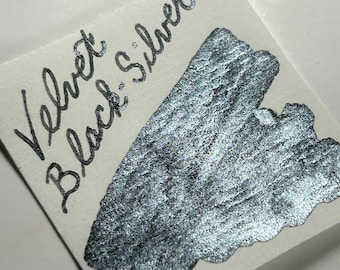 Velvet
Black-Silver